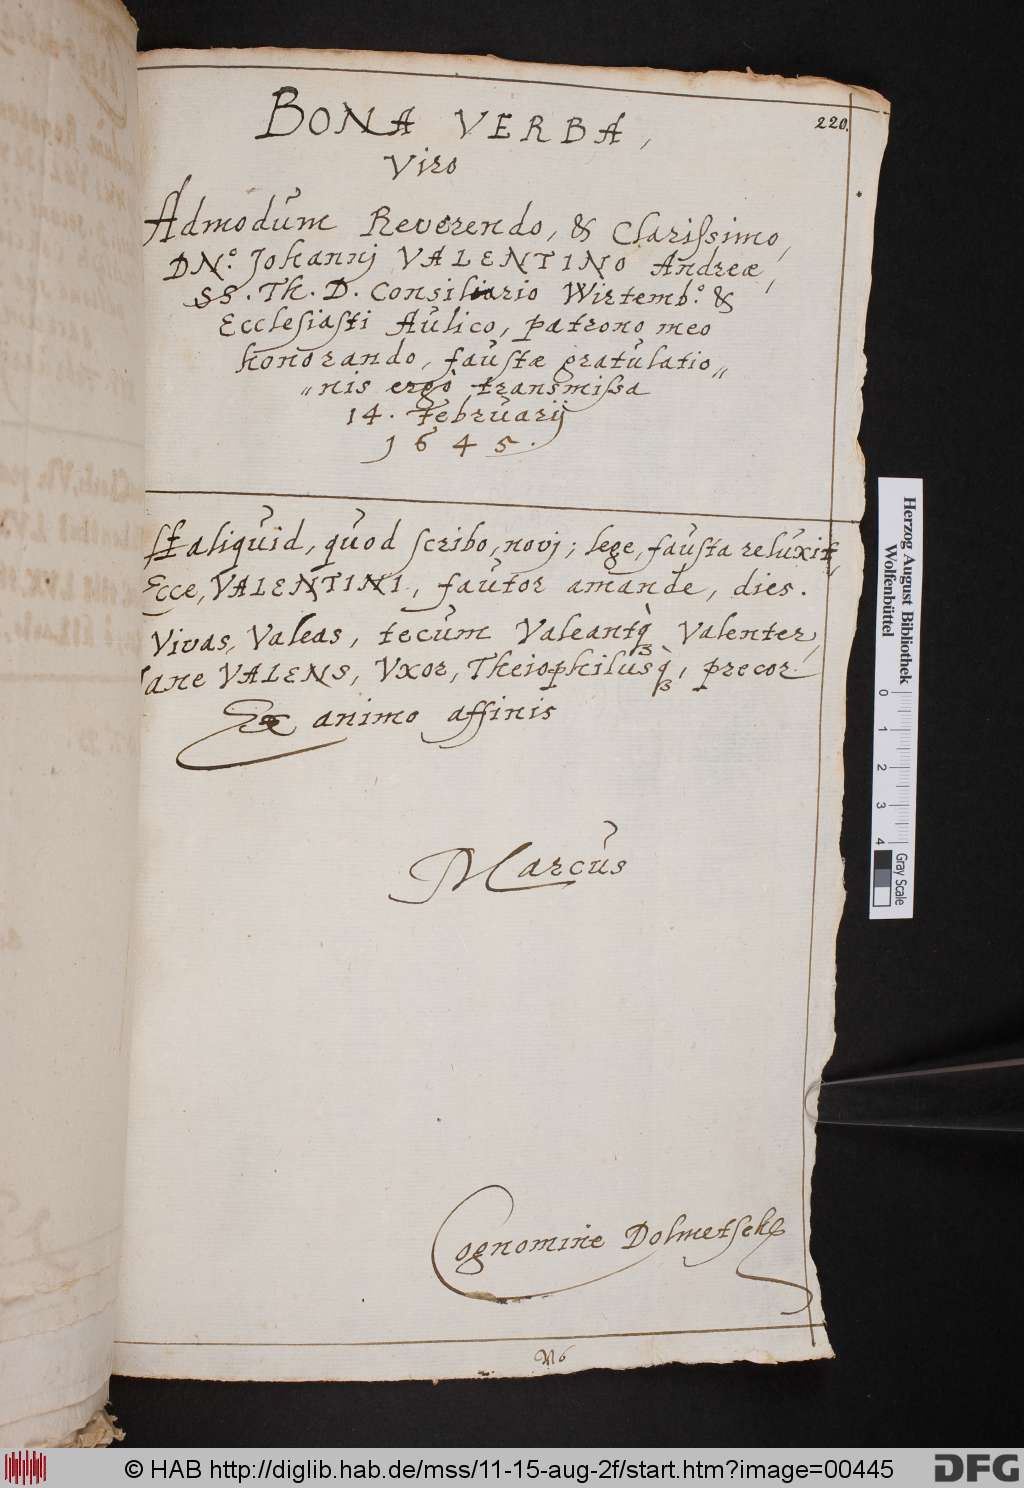 220.
BONA VERBA,
Viro
Admodum Reverendo, & Clarissimo,
DN.º Johannj VALENTINO Andreæ,
SS. Th. D. Consiliario Wirtemb.º &
Ecclesiasti Aulico, patrono meo
honorando, faustæ gratulatio„
„nis ergò transmissa
14. Februarij
1645.
Est aliquid, quod scribo, novj; lege, fausta reluxit,
Ecce, VALENTINI, fautor amande, dies.
Vivas, Valeas, tecum Valeantq̀₃ Valenter,
Sane VALENS, Vxor, Theiophilusq̀₃, precor.
Ex animo affinis
Marcus
Cognomine Dolmetsch
M 6
Herzog August Bibliothek
Wolfenbüttel
0 1 2 3 4
Gray Scale
© HAB http://diglib.hab.de/mss/11-15-aug-2f/start.htm?image=00445
DFG